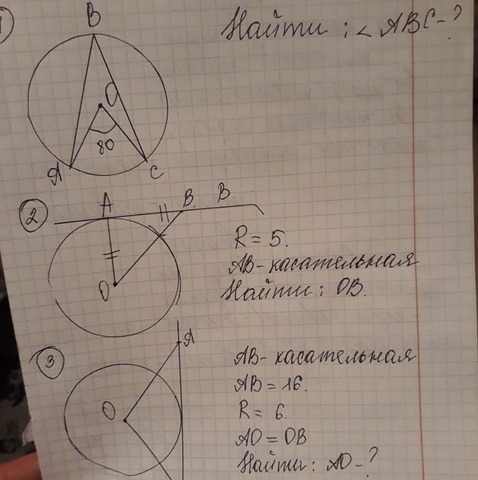 1
Найти : < ABC - ?
B
O
80
A
C
2
A
B
B
O
R = 5.
AB - касательная
Найти : OB.
3
A
O
AB - касательная
AB = 16.
R = 6.
AO = OB
Найти : AO - ?